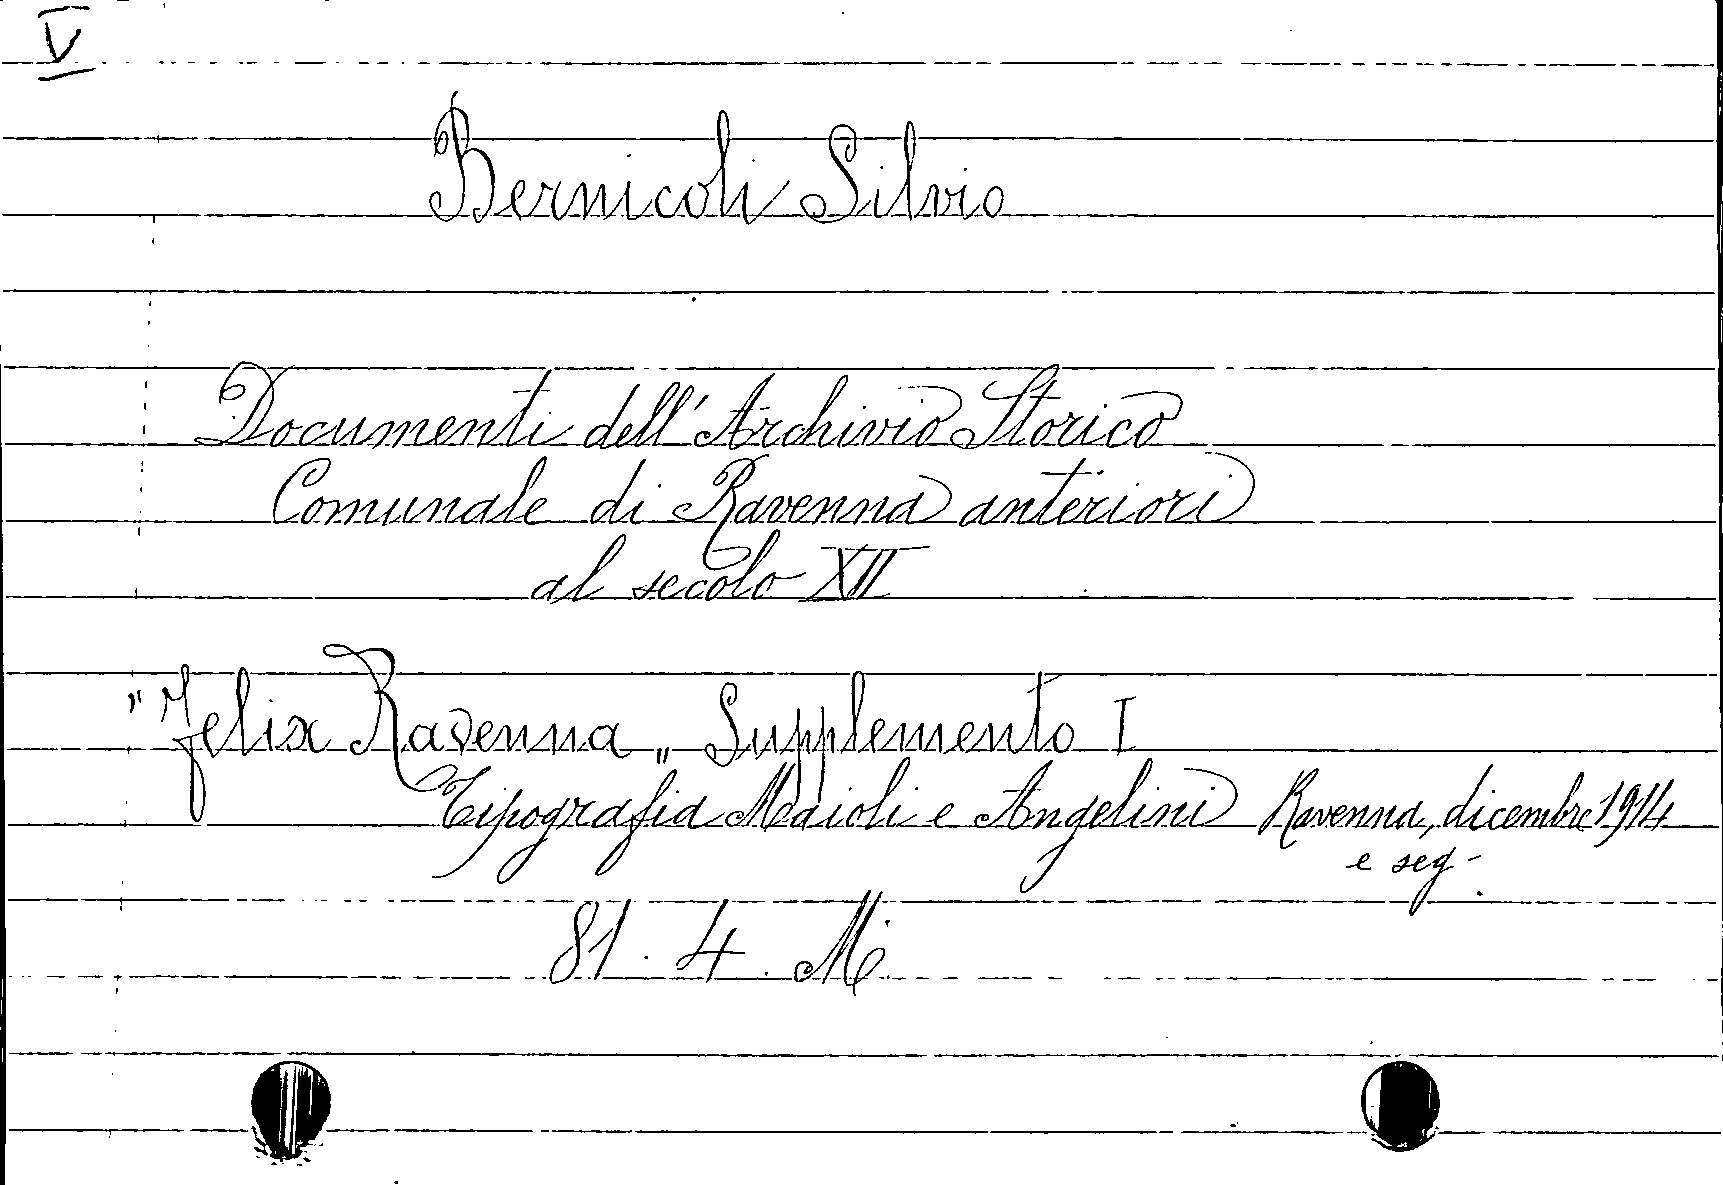 V
Bernicoli Silvio
Documenti dell'Archivio Storico
Comunale di Ravenna anteriori
al secolo XII
"Felix Ravenna„ Supplemento I
Tipografia Maioli e Angelini Ravenna, dicembre 1914
e seg.
81. 4. M